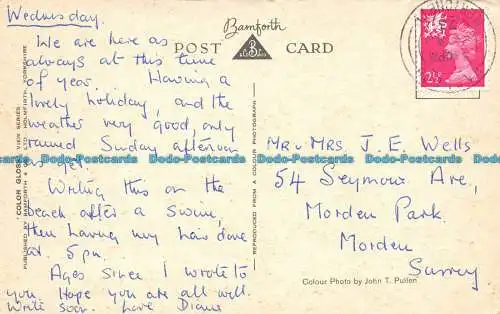 Wednesday.
We are here as
always at this time
of year. Having a
lovely holiday, and the
weather very good, only
rained Sunday afternoon
Writing this on the
beach after a swim,
then having my hair done
at 5 pm.
Ages since I wrote to
you. Hope you are all well.
Write soon. Love Diana
Bamforth
POST CARD
2½P
Mr & Mrs J. E. Wells
54 Seymour Ave,
Morden Park
Morden
Surrey
Colour Photo by John T. Pullen
"COLOR GLOSS" VIEW SERIES
PUBLISHED BY BAMFORTH & CO. LTD. HOLMFIRTH, YORKSHIRE
REPRODUCED FROM A COLOUR PHOTOGRAPH
Dodo-Postcards Dodo-Postcards Dodo-Postcards Dodo-Postcards Dodo-Postcards